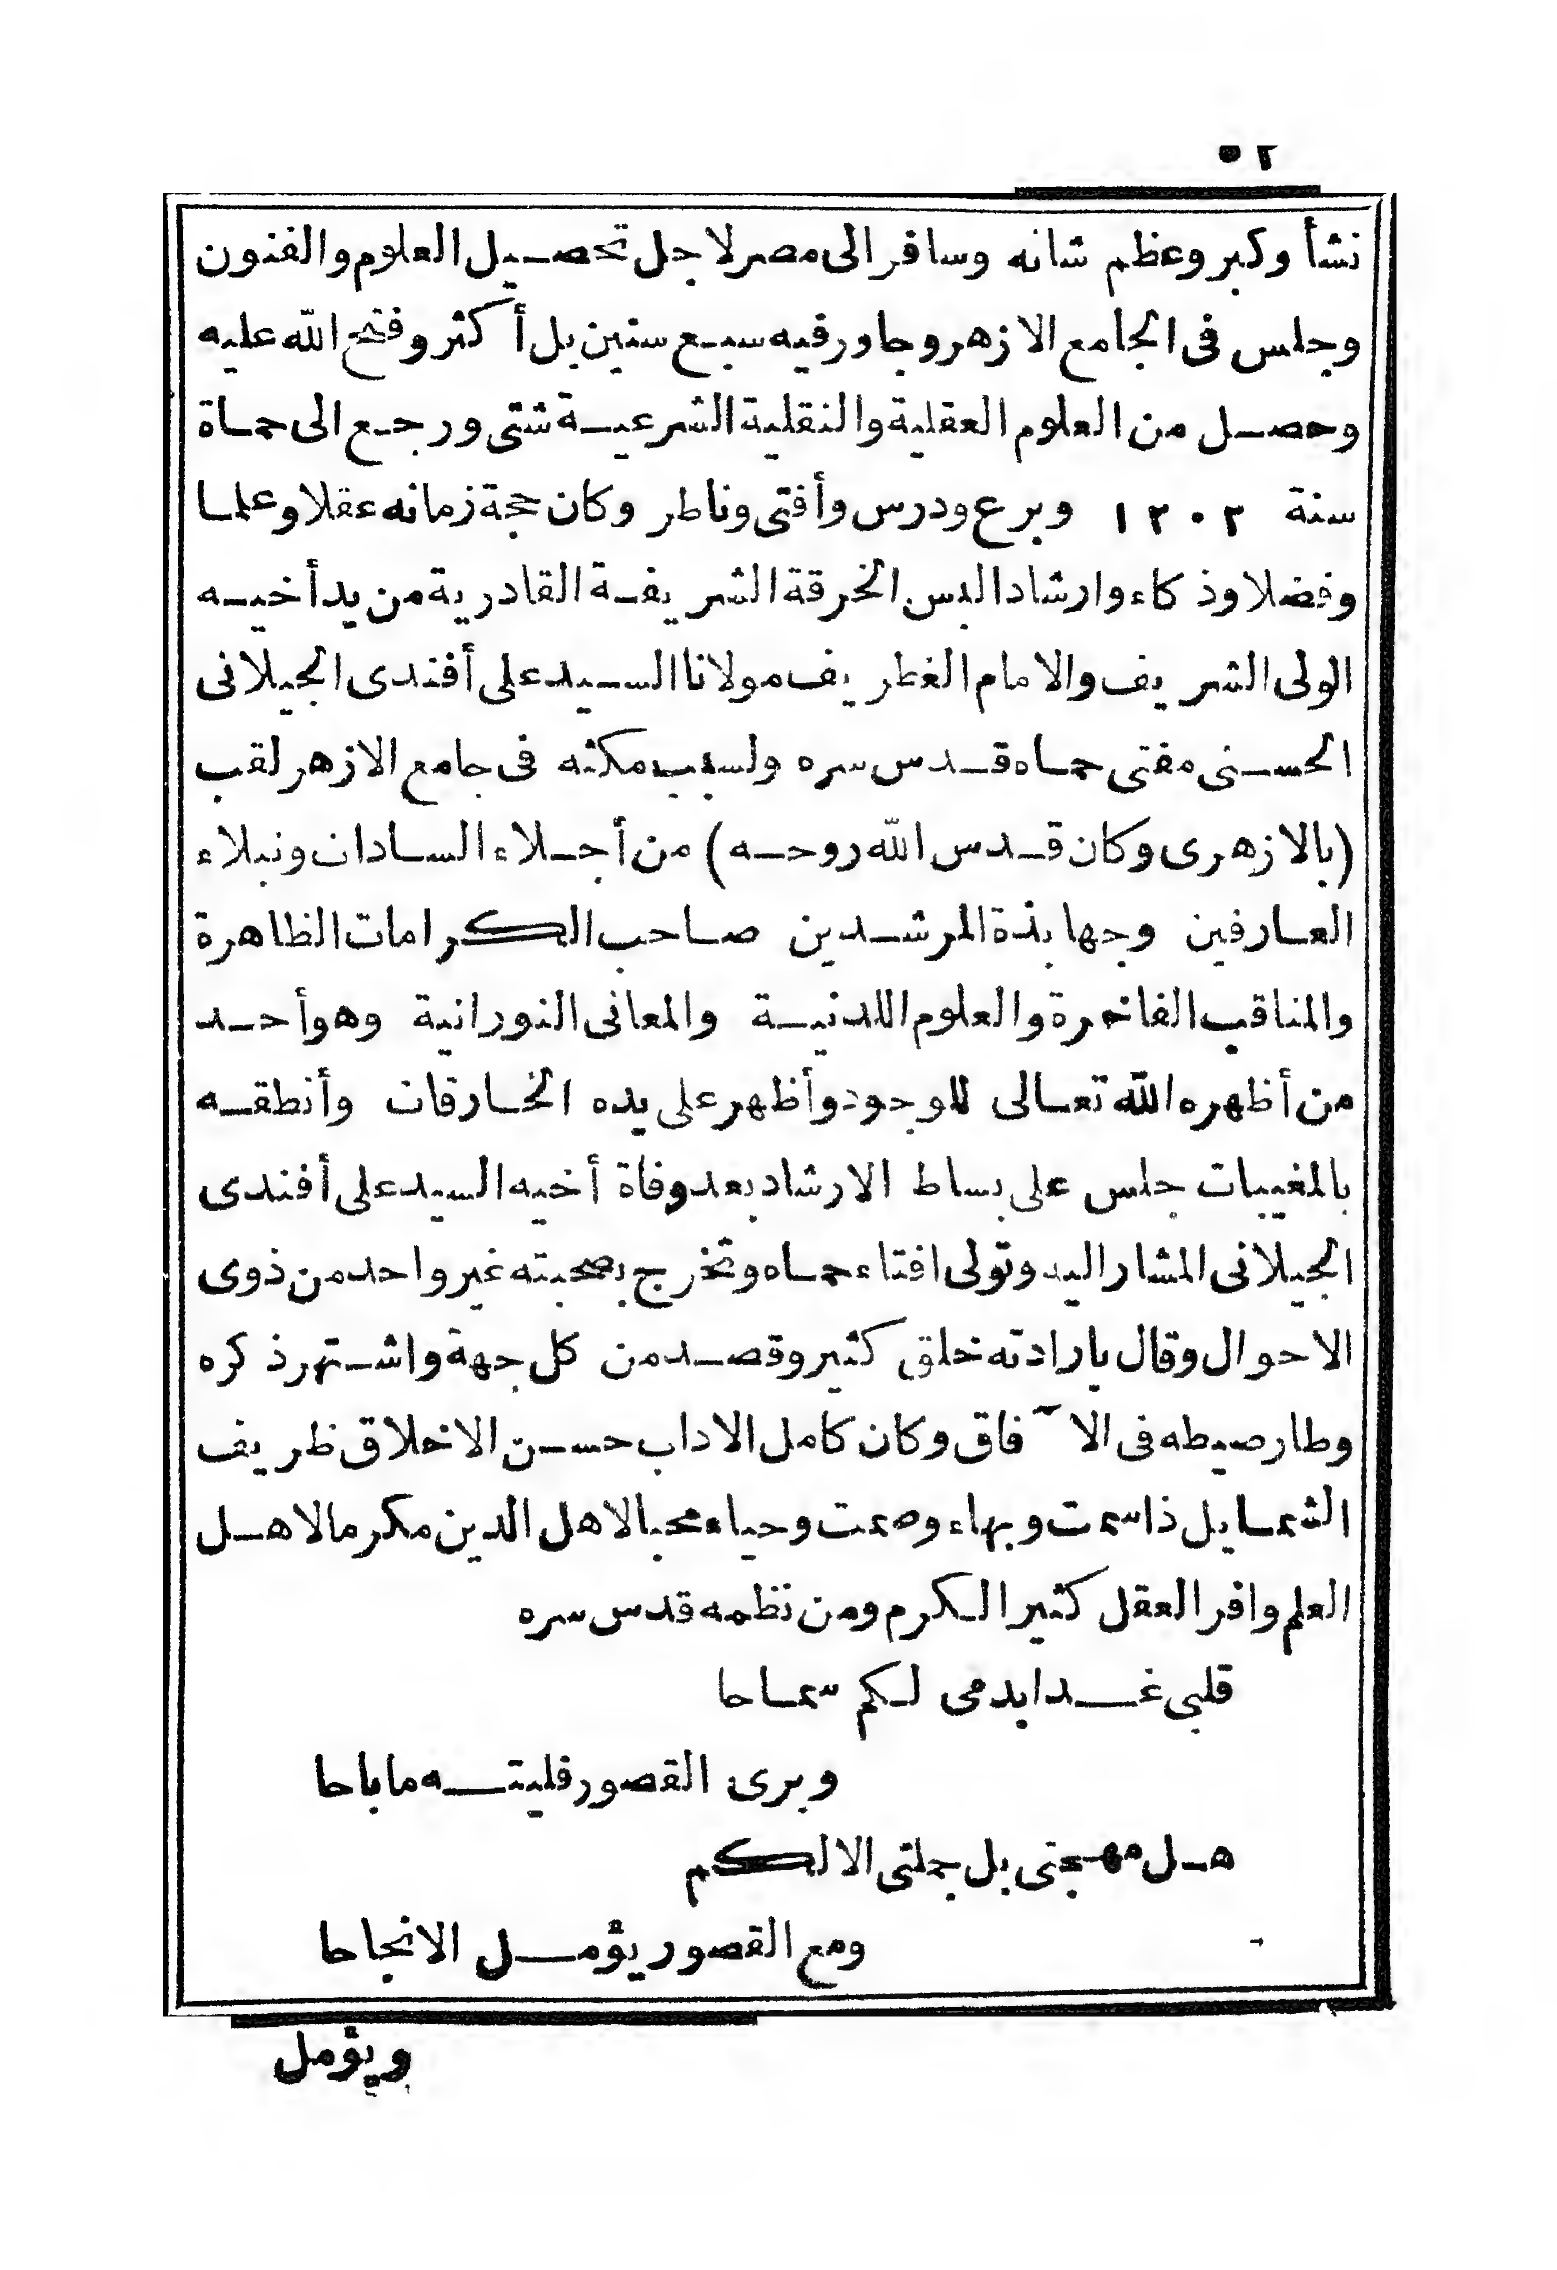 ٥٢
نشأ وكبر وعظم شانه وسافر الى مصر لاجل تحصيل العلوم والفنون
وجلس فى الجامع الازهر وجاور فيه سبع سنين بل أكثر وفتح الله عليه
وحصل من العلوم العقلية والنقلية الشرعية شتى ورجع الى حماة
سنة ١٢٠٢ وبرع ودرس وأفتى وناظر وكان حجة زمانه عقلا وعلما
وفضلا وذكاء وارشادا لبس الخرقة الشريفة القادرية من يد أخيه
الولى الشريف والامام الغطريف مولانا السيد على أفندى الجيلانى
الحسنى مفتى حماه قدس سره ولسبب مكثه فى جامع الازهر لقب
(بالازهرى وكان قدس الله روحه) من أجلاء السادات ونبلاء
العارفين وجهابذة المرشدين صاحب الكرامات الظاهرة
والمناقب الفاخرة والعلوم اللدنية والمعانى النورانية وهو أحد
من أظهره الله تعالى للوجود وأظهر على يده الخارقات وأنطقه
بالمغيبات جلس على بساط الارشاد بعد وفاة أخيه السيد على أفندى
الجيلانى المشار اليه وتولى افتاء حماه وتخرج بصحبته غير واحد من ذوى
الاحوال وقال بارادته خلق كثير وقصد من كل جهة واشتهر ذكره
وطار صيطه فى الآفاق وكان كامل الاداب حسن الاخلاق ظريف
الشمايل ذا سمت وبهاء وصمت وحياء محبا لاهل الدين مكرما لاهل
العلم وافر العقل كثير الكرم ومن نظمه قدس سره
قلبى غدا بدمى لكم سماحا
ويرى القصور فليته ما باحا
هل مهجتى بل جملتى الا لكم
ومع القصور يؤمل الانجاحا
ويؤمل